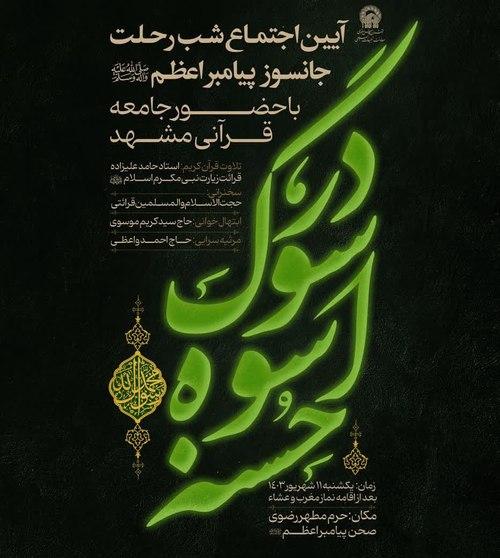 آیین اجتماع شب رحلت
جانسوز پیامبر اعظم ﷺ
با حضور جامعه
قرآنی مشهد
تلاوت قرآن کریم: استاد حامد علیزاده
قرائت زیارت نبی مکرم اسلام ﷺ
سخنرانی:
حجت‌الاسلام والمسلمین قرائتی
ابتهال خوانی: حاج سید کریم موسوی
مرثیه سرایی: حاج احمد واعظی
در
سوگ
اسوه
حسنه
محمد رسول الله
زمان: یکشنبه ۱۱ شهریور ۱۴۰۳
بعد از اقامه نماز مغرب و عشاء
مکان: حرم مطهر رضوی
صحن پیامبر اعظم ﷺ